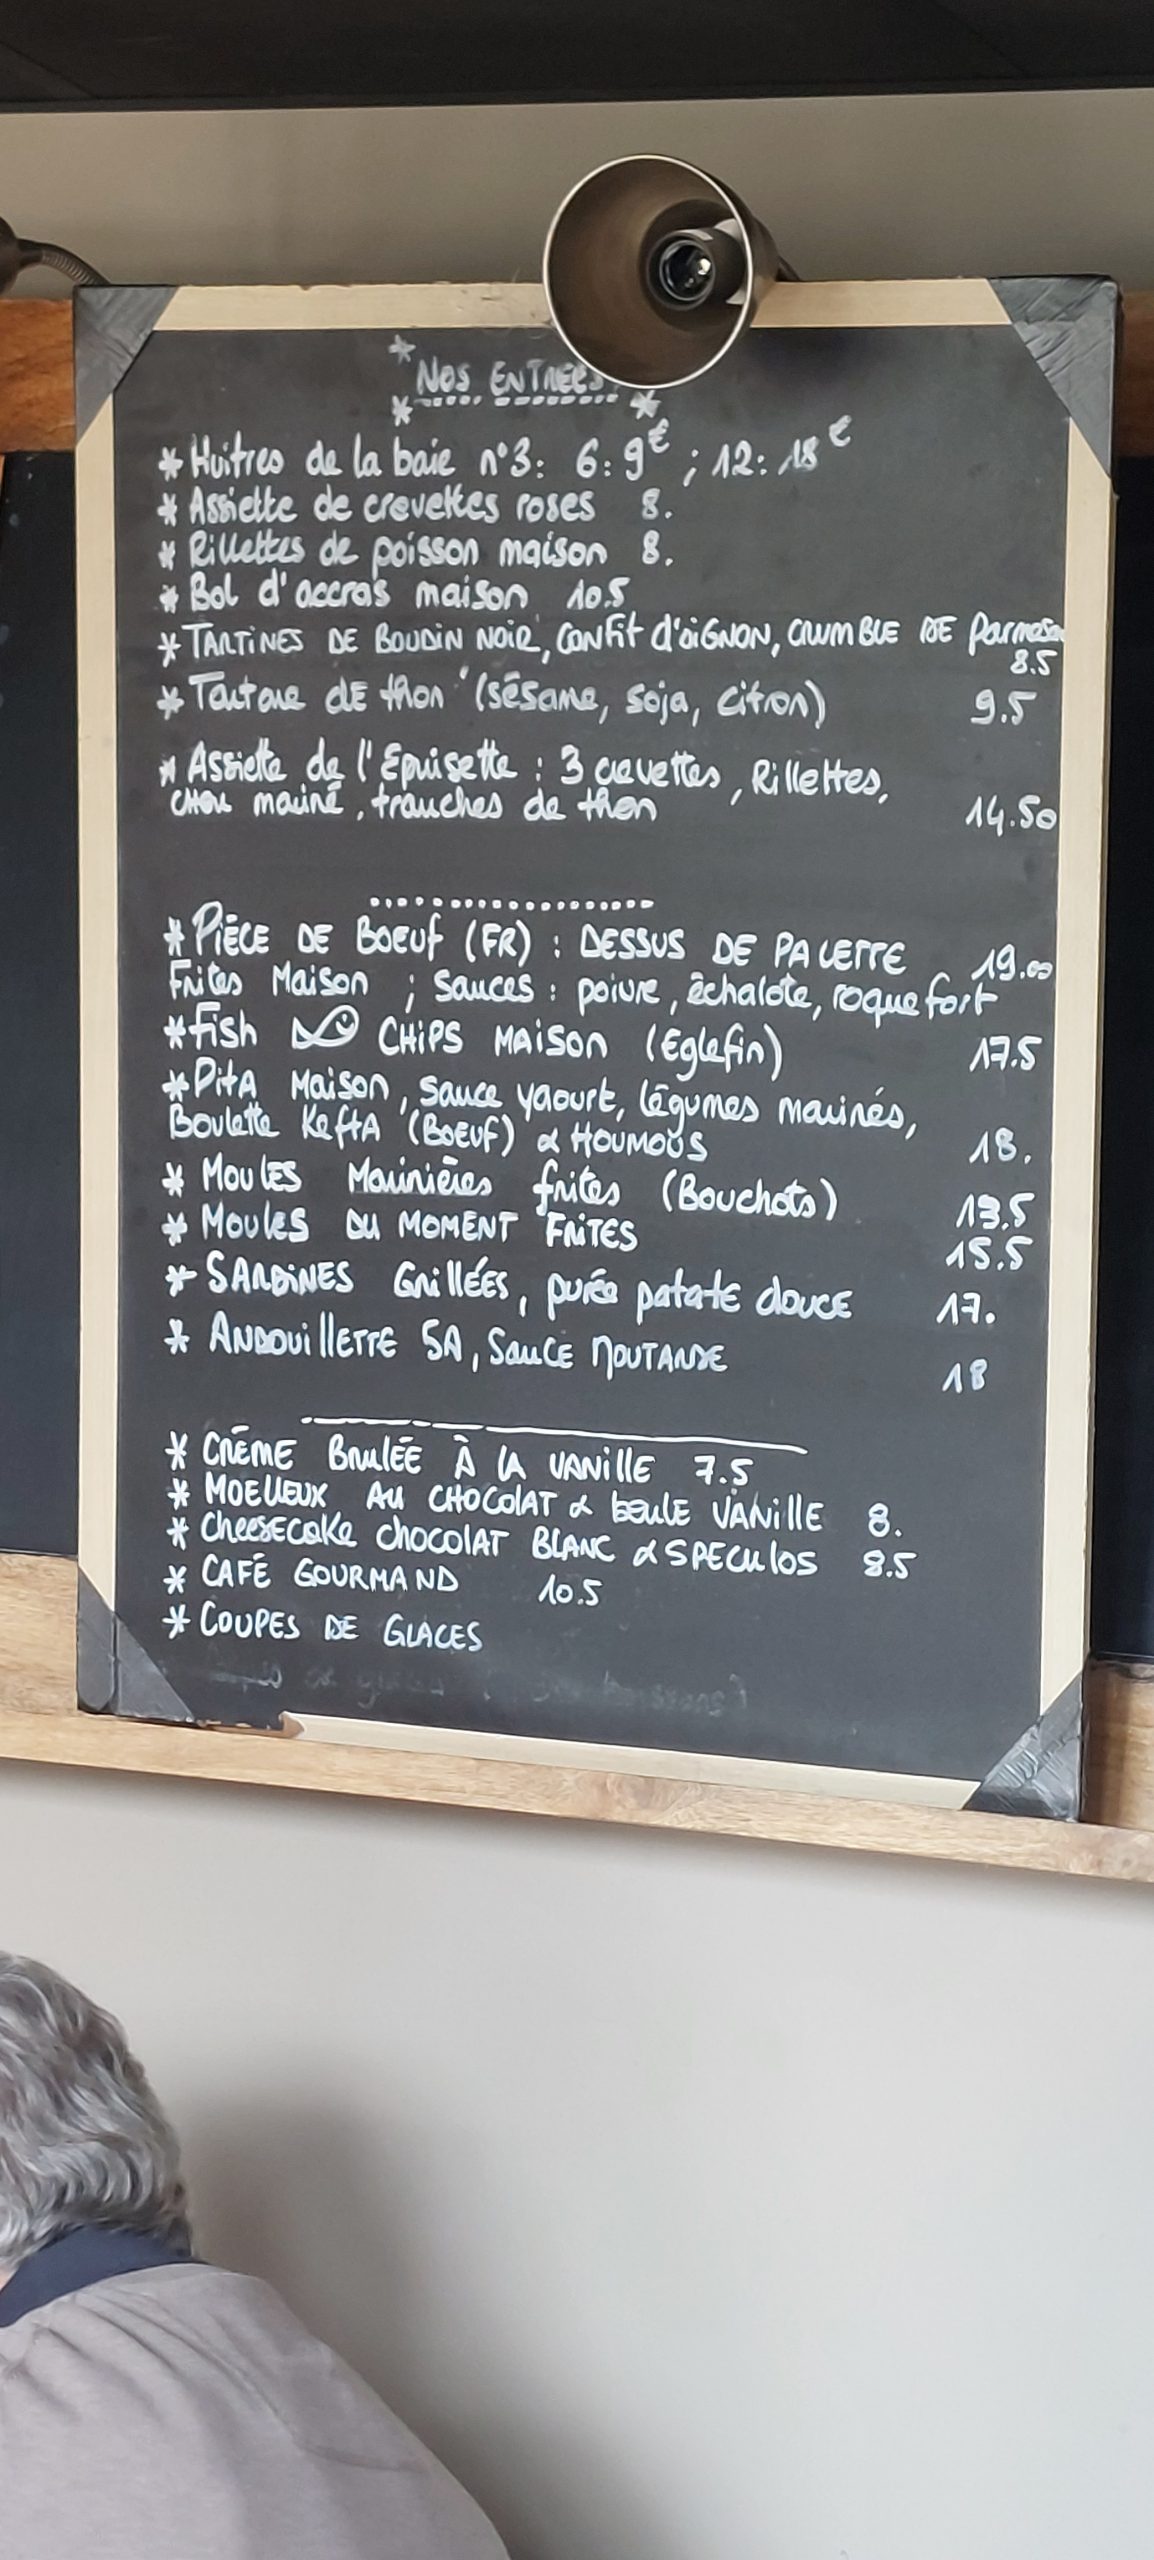 * NOS ENTREES
* Huitres de la baie n°3: 6: 9€ ; 12: 18€
* Assiette de crevettes roses 8.
* Rillettes de poisson maison 8.
* Bol d'accras maison 10.5
* TARTINES DE BOUDIN NOIR, CONFIT d'OIGNON, CRUMBLE DE Parmesan
8.5
* Tartare dE thon (sésame, soja, citron) 9.5
* Assiette de l'Epuisette : 3 crevettes, Rillettes,
CHOU mariné, tranches de thon 14.50
* PIÈCE DE BOEUF (FR) : DESSUS DE PALETTE 19.00
Frites Maison ; Sauces : poivre, échalote, roquefort
* Fish CHIPS MAISON (Eglefin) 17.5
* PitA Maison, sauce yaourt, légumes marinés,
Boulette KeftA (BOEUF) & HOUMOUS 18.
* Moules Marinières frites (Bouchots) 13.5
* Moules DU MOMENT FRITES 15.5
* SARDINES GRILLÉES, purée patate douce 17.
* ANDOUILLETTE 5A, SAUCE MOUTARDE 18
* CRÈME BRULÉE À LA VANILLE 7.5
* MOELLEUX AU CHOCOLAT & boule VANILLE 8.
* Cheesecake chocolat BLANC & SPECULOS 8.5
* CAFÉ GOURMAND 10.5
* COUPES DE GLACES